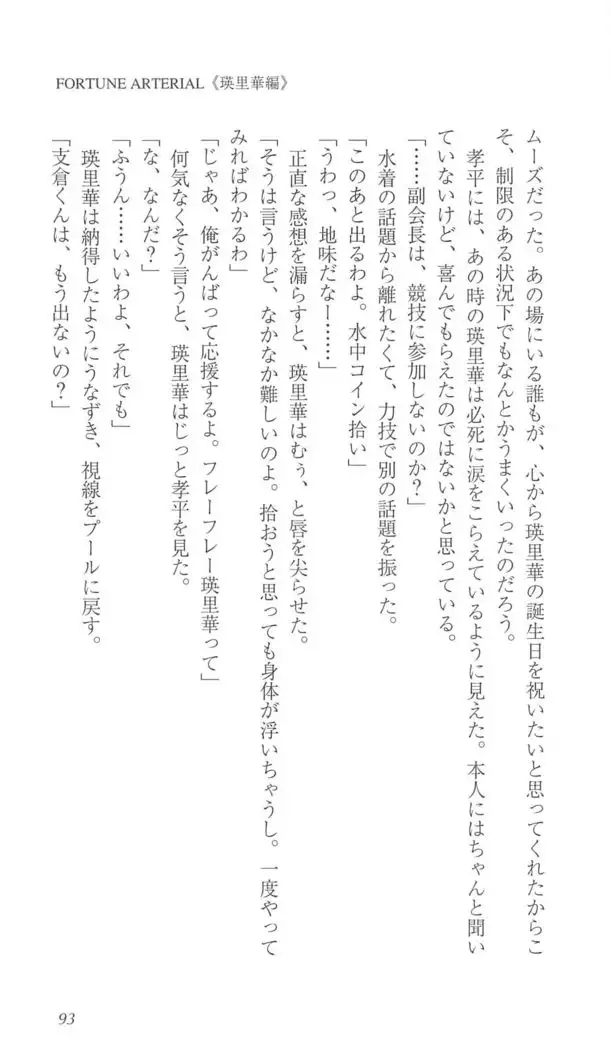 FORTUNE ARTERIAL《瑛里華編》
ムーズだった。あの場にいる誰もが、心から瑛里華の誕生日を祝いたいと思ってくれたからこ
そ、制限のある状況下でもなんとかうまくいったのだろう。
孝平には、あの時の瑛里華は必死に涙をこらえているように見えた。本人にはちゃんと聞い
ていないけど、喜んでもらえたのではないかと思っている。
「……副会長は、競技に参加しないのか？」
水着の話題から離れたくて、力技で別の話題を振った。
「このあと出るわよ。水中コイン拾い」
「うわっ、地味だなー……」
正直な感想を漏らすと、瑛里華はむぅ、と唇を尖らせた。
「そうは言うけど、なかなか難しいのよ。拾おうと思っても身体が浮いちゃうし。一度やって
みればわかるわ」
「じゃあ、俺がんばって応援するよ。フレーフレー瑛里華って」
何気なくそう言うと、瑛里華はじっと孝平を見た。
「な、なんだ？」
「ふうん……いいわよ、それでも」
瑛里華は納得したようにうなずき、視線をプールに戻す。
「支倉くんは、もう出ないの？」
93